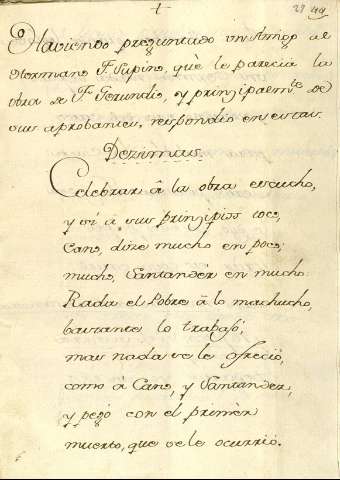 29 49
Haviendo preguntado un Amigo al
Hermano F. Supino, què le parecia la
obra de F. Gerundio, y principalm.te de
sus aprobantes, respondio en estas
Dezimas
Celebrar â la obra escucho,
y si â sus principios toco,
Cano, dize mucho en poco;
mucho, Santandèr en mucho:
Rada el Pobre â lo machucho,
bastante lo trabajó,
mas nada se le ofreciò,
como â Cano, y Santander,
y pegò con el primèr
muerto, que se le ocurriò.